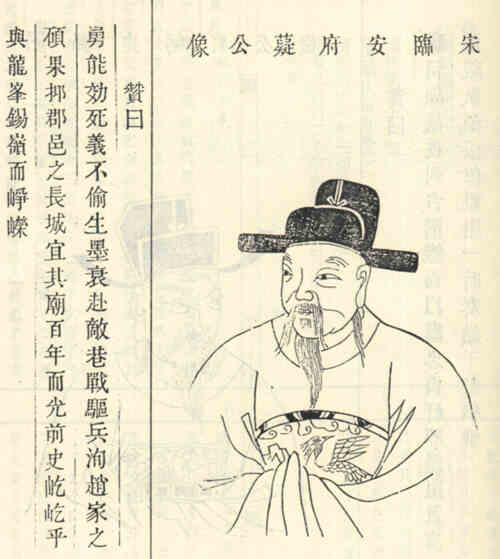 宋臨安府薿公像
贊曰
勇能効死義不偷生墨衰赴敵巷戰驅兵洵趙家之
碩果抑郡邑之長城宜其廟百年而光前史屹屹乎
與龍峯錫嶺而崢嶸